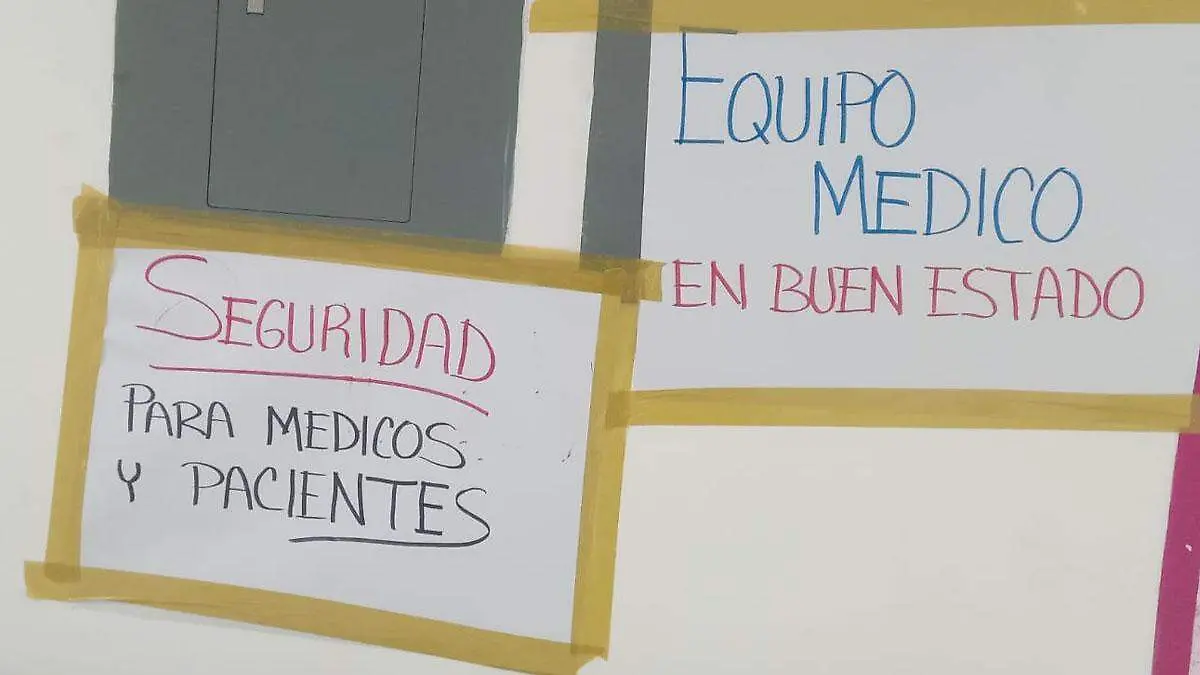 EQUIPO
MEDICO
EN BUEN ESTADO
SEGURIDAD
PARA MEDICOS
Y PACIENTES